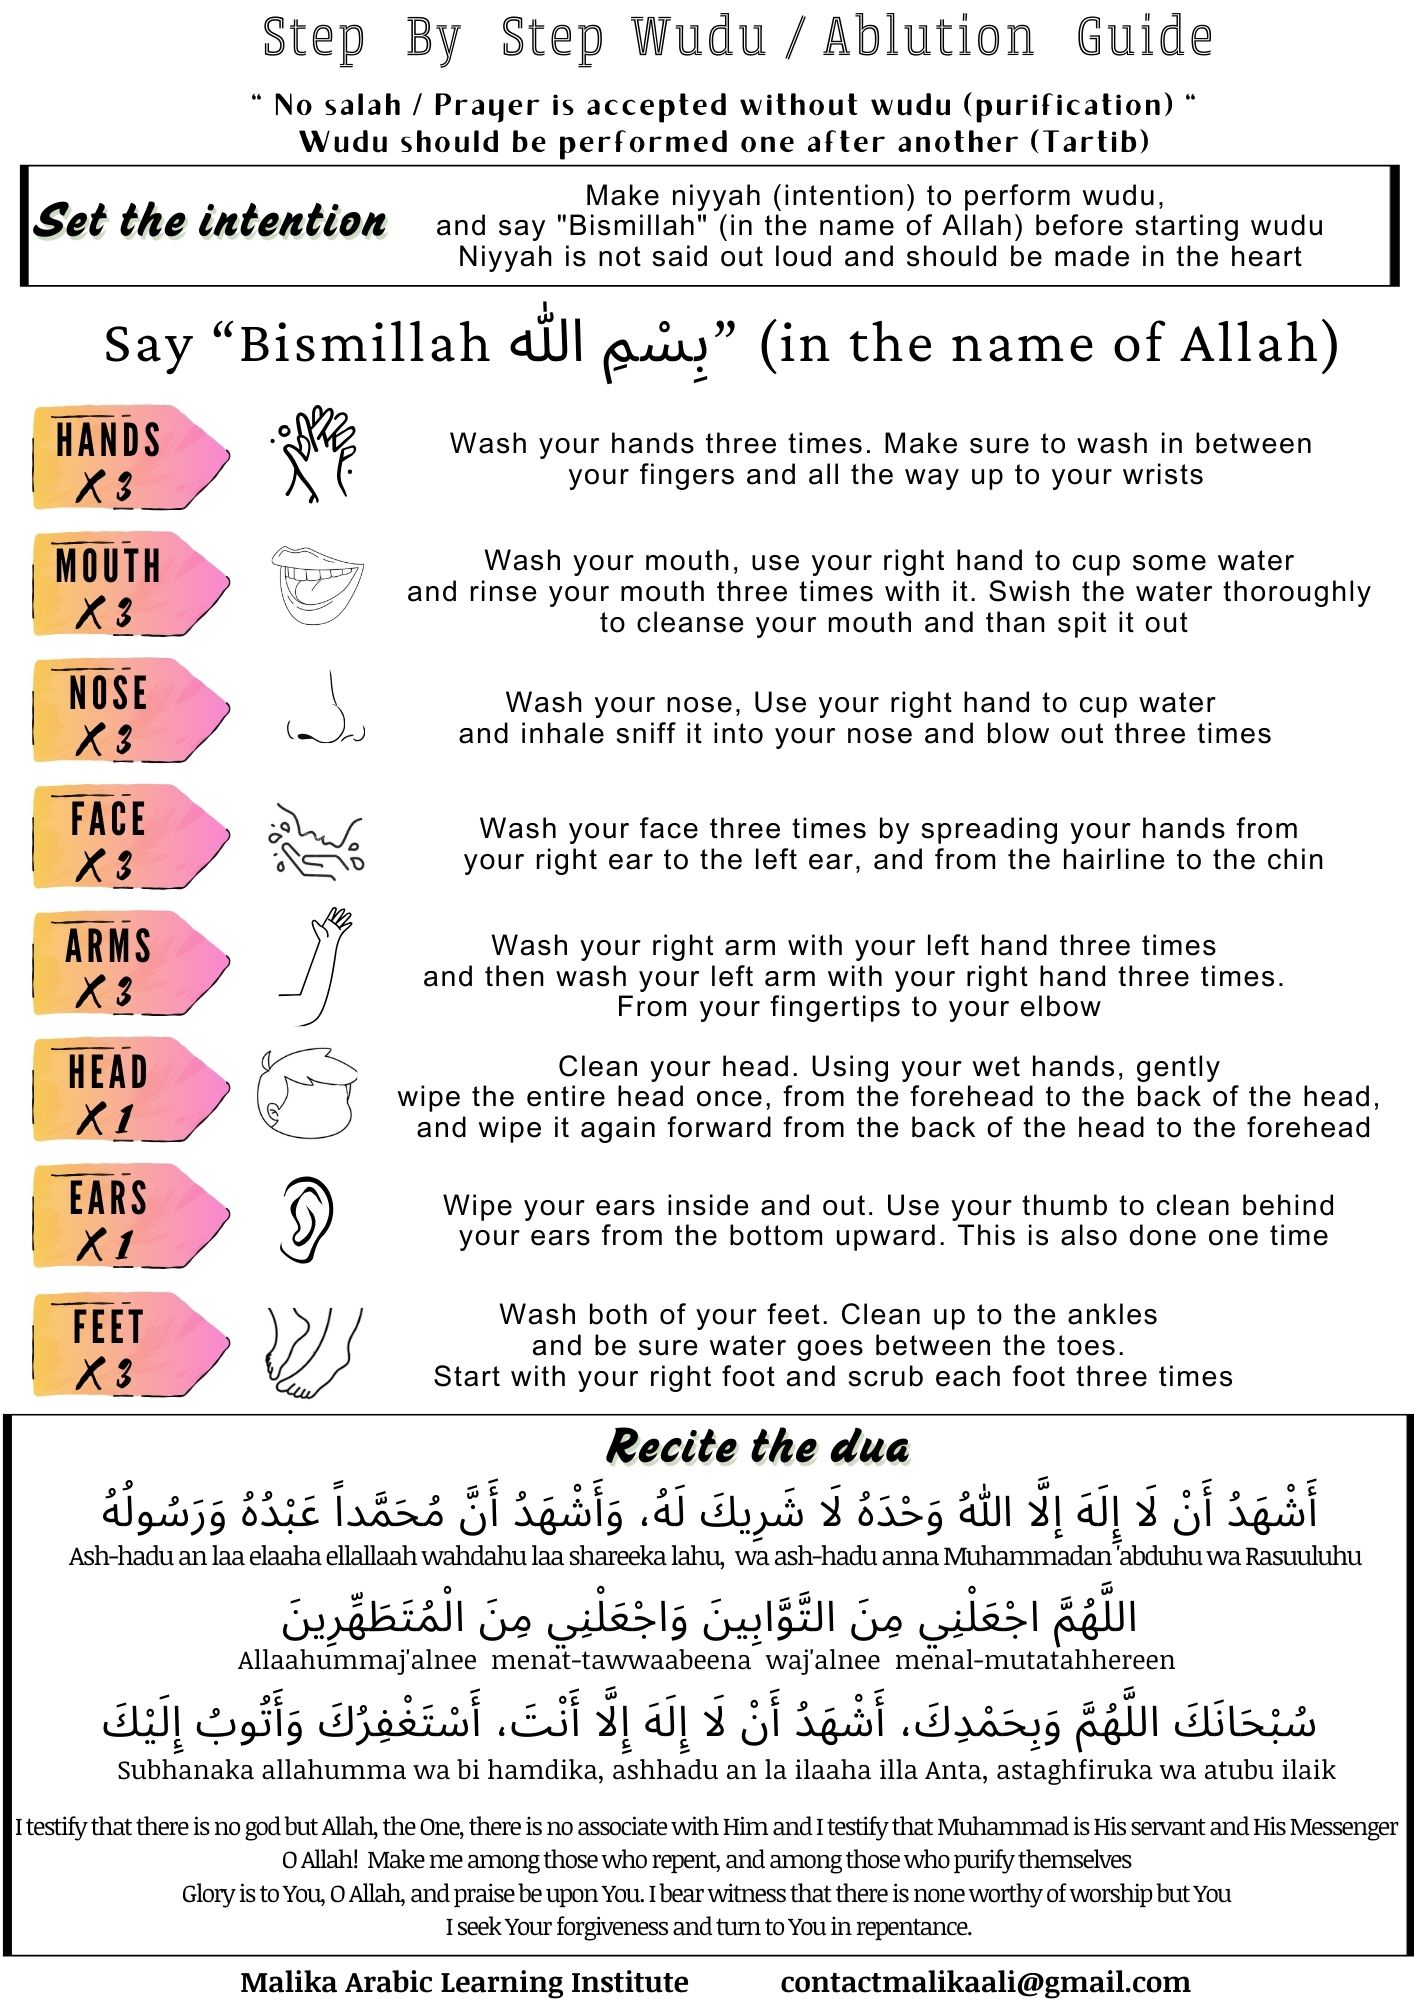 Step By Step Wudu / Ablution Guide
“ No salah / Prayer is accepted without wudu (purification) “
Wudu should be performed one after another (Tartib)
Set the intention
Make niyyah (intention) to perform wudu,
and say "Bismillah" (in the name of Allah) before starting wudu
Niyyah is not said out loud and should be made in the heart
Say “Bismillah بِسْمِ اللّٰه” (in the name of Allah)
HANDS
X 3
Wash your hands three times. Make sure to wash in between
your fingers and all the way up to your wrists
MOUTH
X 3
Wash your mouth, use your right hand to cup some water
and rinse your mouth three times with it. Swish the water thoroughly
to cleanse your mouth and than spit it out
NOSE
X 3
Wash your nose, Use your right hand to cup water
and inhale sniff it into your nose and blow out three times
FACE
X 3
Wash your face three times by spreading your hands from
your right ear to the left ear, and from the hairline to the chin
ARMS
X 3
Wash your right arm with your left hand three times
and then wash your left arm with your right hand three times.
From your fingertips to your elbow
HEAD
X 1
Clean your head. Using your wet hands, gently
wipe the entire head once, from the forehead to the back of the head,
and wipe it again forward from the back of the head to the forehead
EARS
X 1
Wipe your ears inside and out. Use your thumb to clean behind
your ears from the bottom upward. This is also done one time
FEET
X 3
Wash both of your feet. Clean up to the ankles
and be sure water goes between the toes.
Start with your right foot and scrub each foot three times
Recite the dua
أَشْهَدُ أَنْ لَا إِلَهَ إلَّا اللّٰهُ وَحْدَهُ لَا شَرِيكَ لَهُ، وَأَشْهَدُ أَنَّ مُحَمَّداً عَبْدُهُ وَرَسُولُهُ
Ash-hadu an laa elaaha ellallaah wahdahu laa shareeka lahu, wa ash-hadu anna Muhammadan 'abduhu wa Rasuuluhu
اللَّهُمَّ اجْعَلْنِي مِنَ التَّوَّابِينَ وَاجْعَلْنِي مِنَ الْمُتَطَهِّرِينَ
Allaahummaj'alnee menat-tawwaabeena waj'alnee menal-mutatahhereen
سُبْحَانَكَ اللَّهُمَّ وَبِحَمْدِكَ، أَشْهَدُ أَنْ لَا إِلَهَ إِلَّا أَنْتَ، أَسْتَغْفِرُكَ وَأَتُوبُ إِلَيْكَ
Subhanaka allahumma wa bi hamdika, ashhadu an la ilaaha illa Anta, astaghfiruka wa atubu ilaik
I testify that there is no god but Allah, the One, there is no associate with Him and I testify that Muhammad is His servant and His Messenger
O Allah! Make me among those who repent, and among those who purify themselves
Glory is to You, O Allah, and praise be upon You. I bear witness that there is none worthy of worship but You
I seek Your forgiveness and turn to You in repentance.
Malika Arabic Learning Institute contactmalikaali@gmail.com